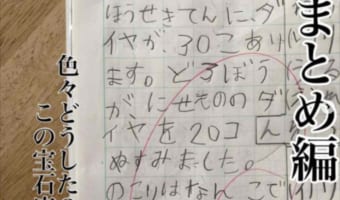 まとめ編
ほうせきてんに、ダ
イヤが、30こあり
ます。どろぼう
がにせもののダ
イヤを20コ
ぬすみました。
のこりはなんこで
ん
色々どうした
この宝石